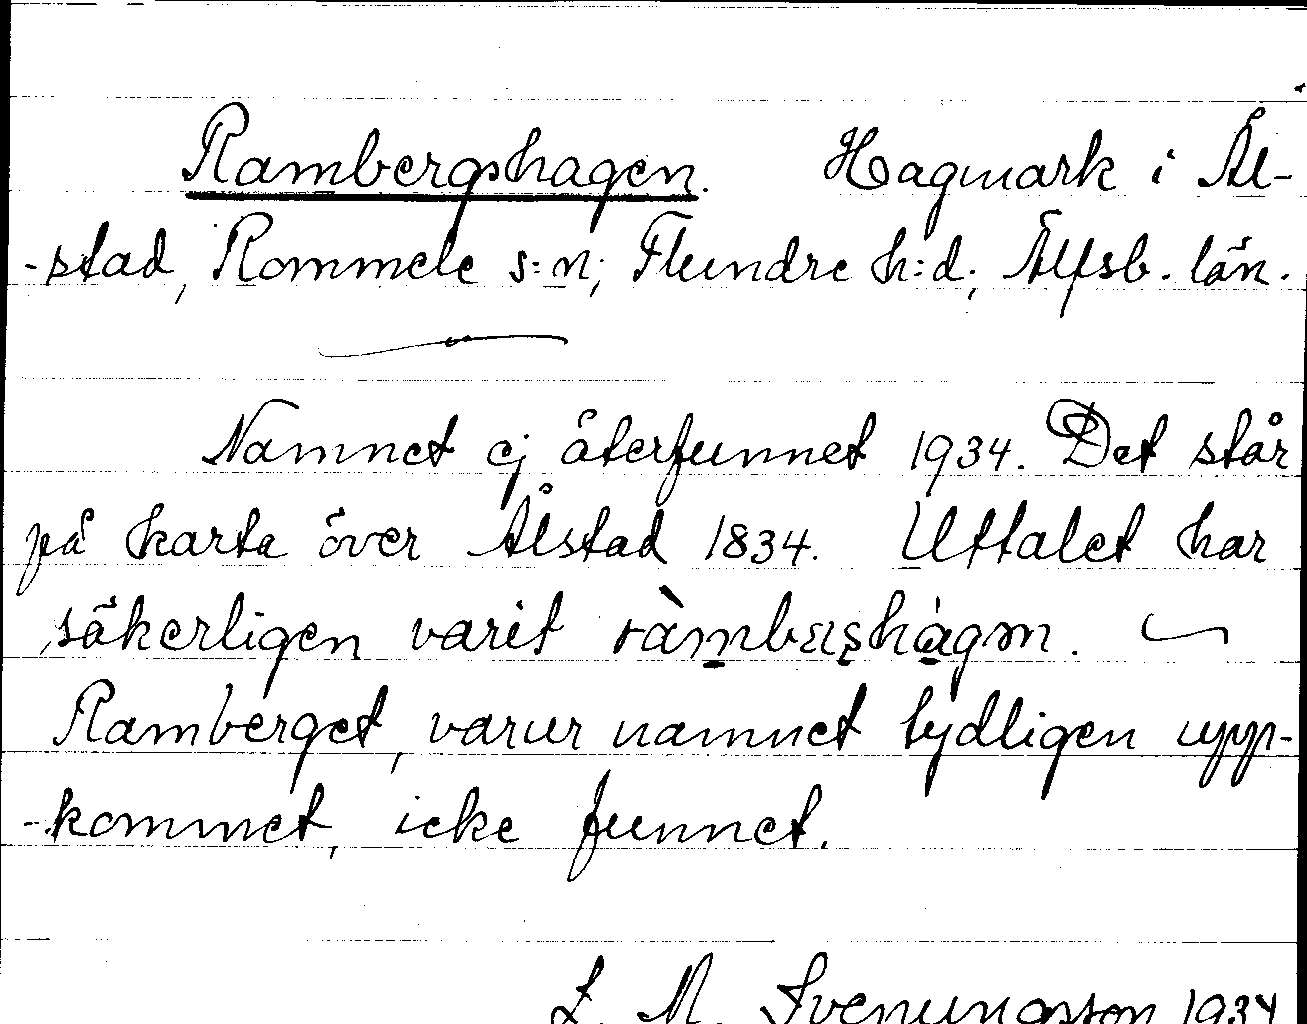 Rambergshagen. Hagmark i Ål-
-stad, Rommele s:n; Flundre h:d; Älfsb. län.
Namnet ej återfunnet 1934. Det står
på karta över Ålstad 1834. Uttalet har
säkerligen varit
Ramberget, varur namnet tydligen upp-
-kommet, icke funnet.
L. M. Svenungsson 1934